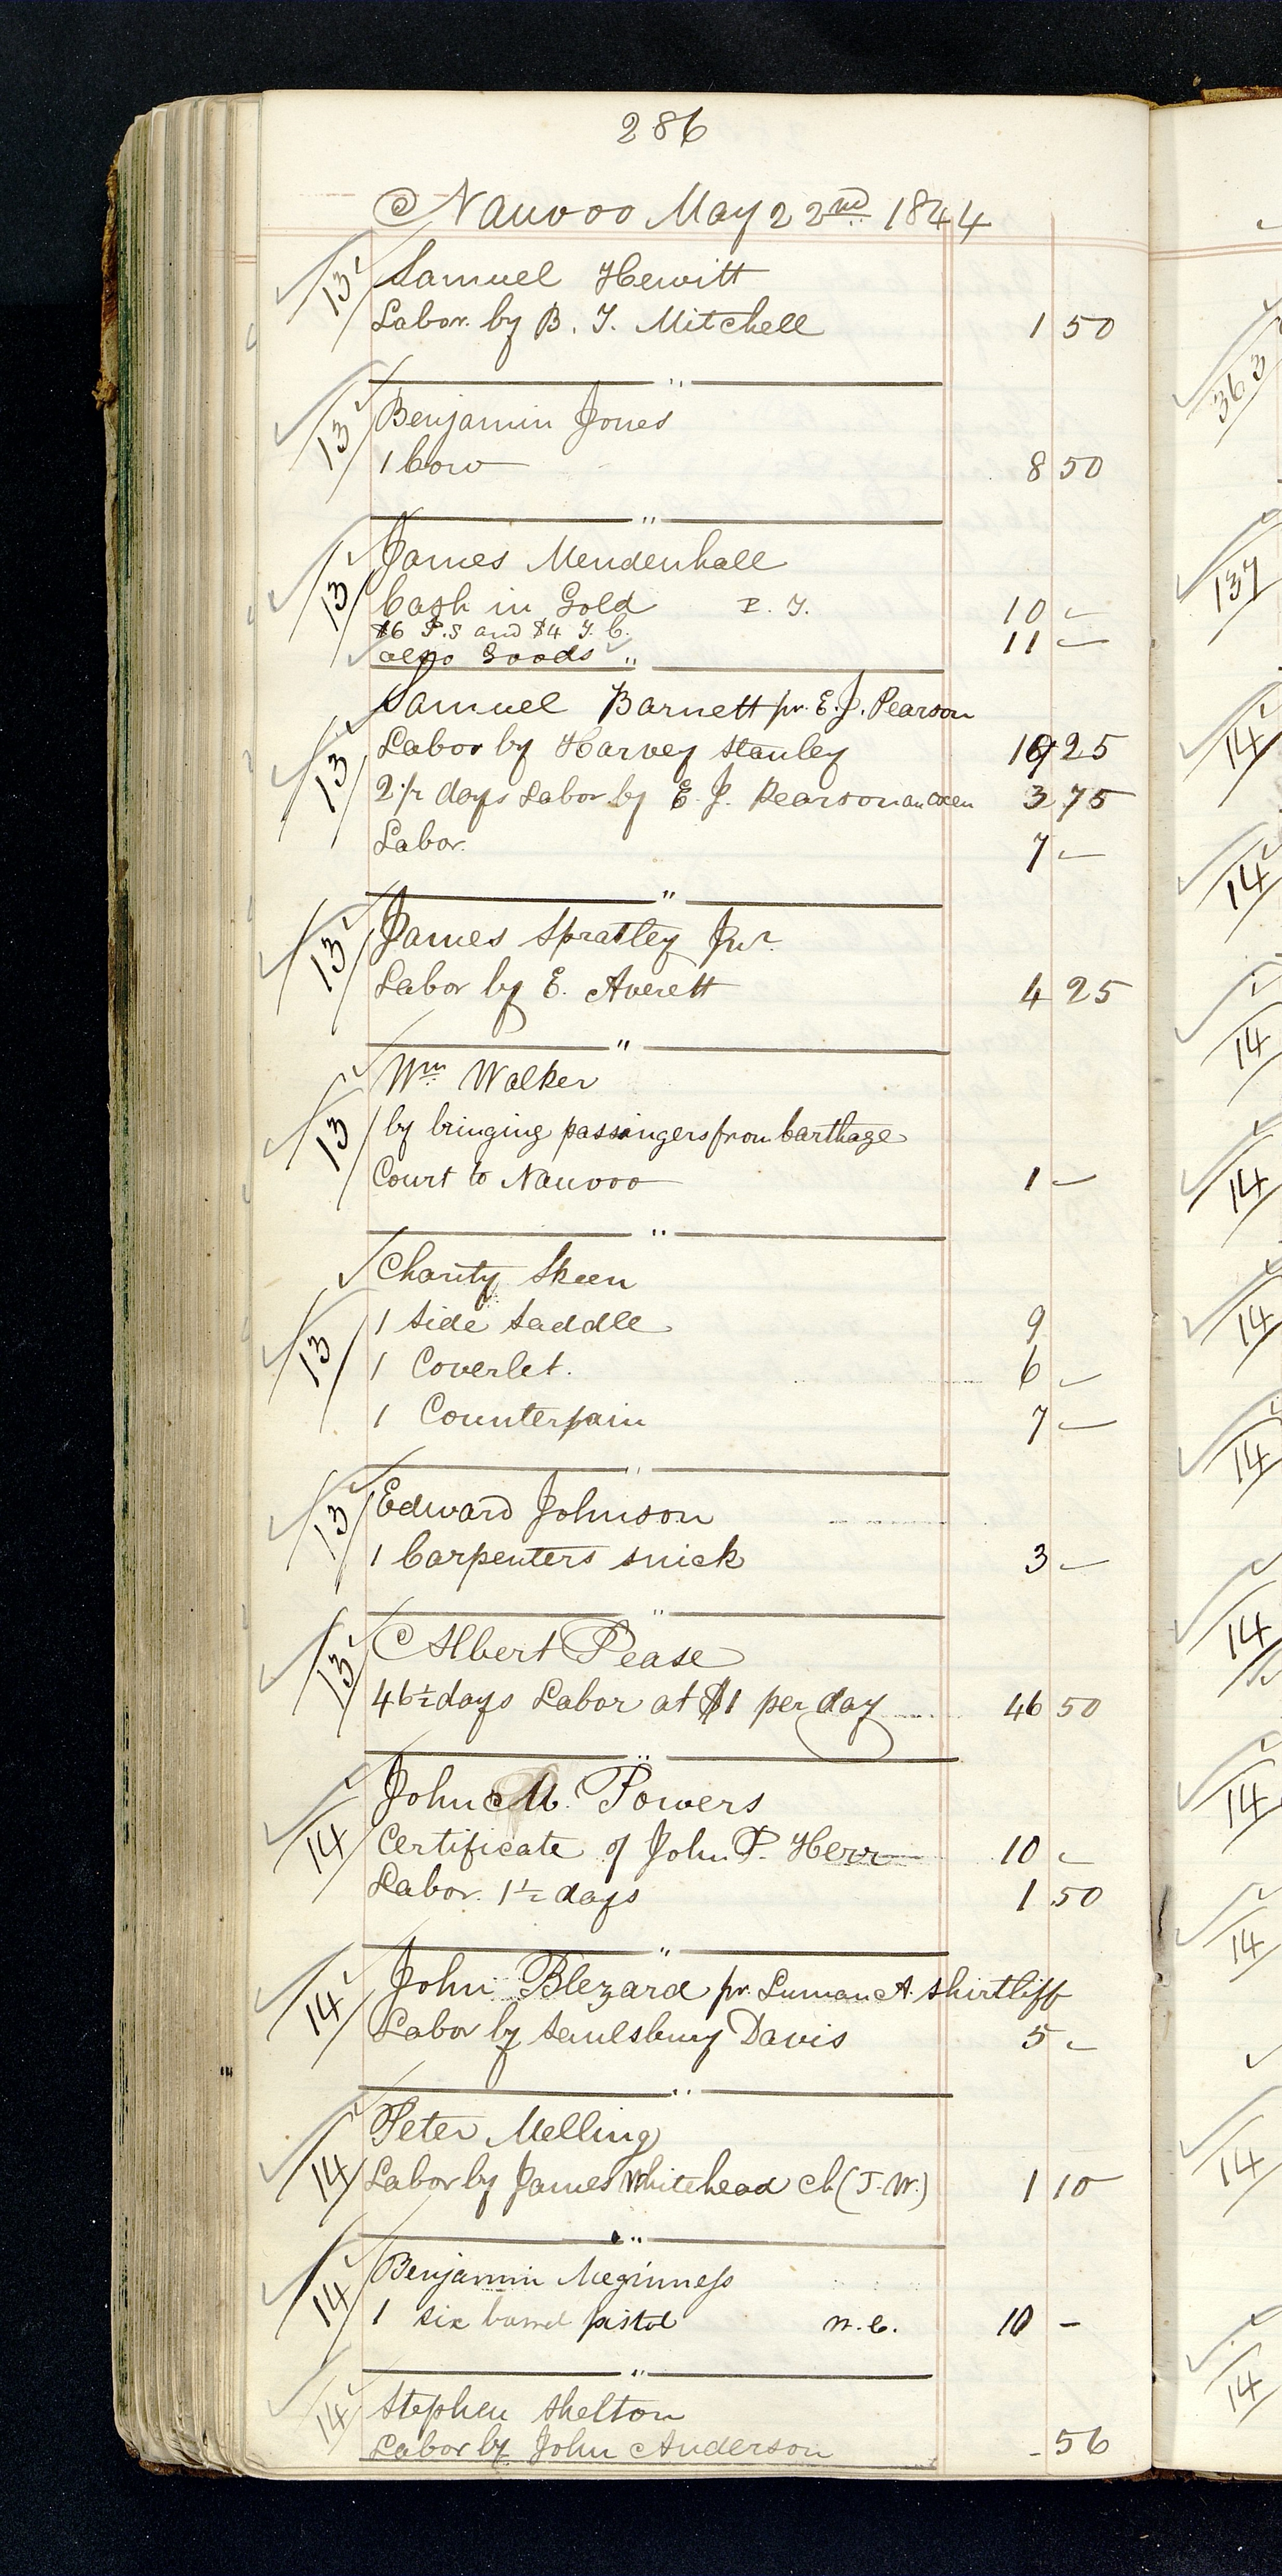 286
Nauvoo May 22nd 1844
13 Samuel Hewitt
Labor by B. T. Mitchell 1 50
"
13 Benjamin Jones
1 Cow 8 50
"
13 James Mendenhall
Cash in Gold P. T. 10 -
$6 P.S and $4 T. C. 11 -
also Goods "
13 Samuel Barnett pr. E. J. Pearson
Labor by Harvey Stanley 25
2 1/2 days Labor by E. J. Pearson 3 75
Labor. 7 -
"
13 James Spratley Jur.
Labor by E. Averett 4 25
"
13 Wm Walker
by bringing passingers from Carthage
Court to Nauvoo 1 -
"
13 Charity Skeen
1 Side Saddle 9
1 Coverlet. 6 -
1 Counterpain 7 -
"
13 Edward Johnson
1 Carpenters snick 3 -
"
13 Albert Pease
46 1/2 days Labor at $1 per day 46 50
"
14 John M. Powers
Certificate of John P. Herr 10 -
Labor. 1 1/2 days 1 50
"
14 John Blezard pr. Luman A. Shirtliff
Labor by Saulsbury Davis 5 -
"
14 Peter Melling
Labor by James Whitehead Ch (J. W.) 1 10
"
14 Benjamin Meginness
1 six barrel pistol W. C. 10 -
"
14 Stephen Shelton
Labor by John Anderson - 56
363
137
14
14
14
14
14
14
14
14
14
14
14